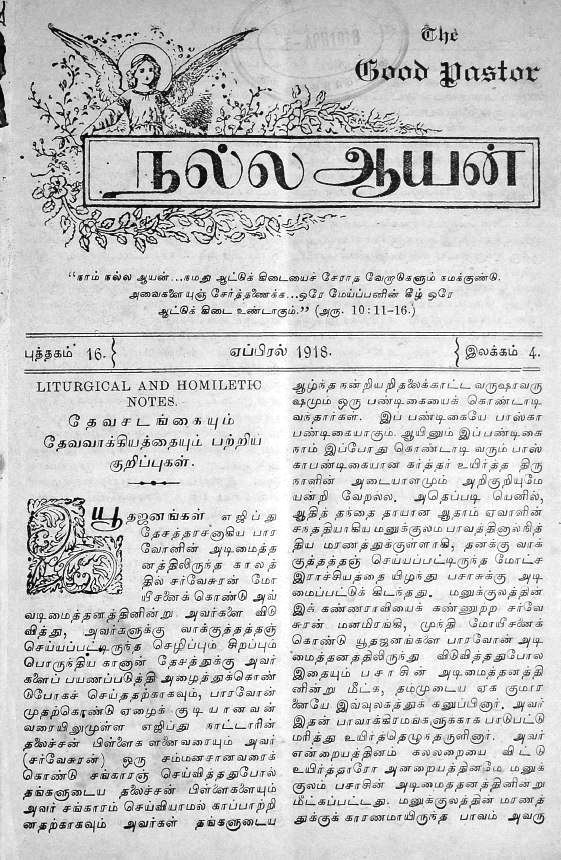 The
Good Pastor
நல்ல ஆயன்
“நாம் நல்ல ஆயன்...நமது ஆட்டுக் கிடையைச் சேராத வேறாடுகளும் நமக்குண்டு.
அவைகளையுஞ் சேர்த்தணைக்க...ஒரே மேய்ப்பனின் கீழ் ஒரே
ஆட்டுக் கிடை உண்டாகும்.” (அரு. 10 : 11-16.)
புத்தகம் 16. ஏப்பிரல் 1918. இலக்கம் 4.
LITURGICAL AND HOMILETIC
NOTES.
தேவசடங்கையும்
தேவவாக்கியத்தையும் பற்றிய
குறிப்புகள்.
யூதஜனங்கள் எஜிப்து
தேசத்தரசனாகிய பார
வோனின் அடிமைத்த
னத்திலிருந்த காலத்
தில் சர்வேசுரன் மோ
யீசனைக் கொண்டு அவ்
வடிமைத்தனத்தினின்று அவர்களை விடு
வித்து, அவர்களுக்கு வாக்குத்தத்தஞ்
செய்யப்பட்டிருந்த செழிப்பும் சிறப்பும்
பொருந்திய கானான் தேசத்துக்கு அவர்
களைப் பயணப்படுத்தி அழைத்துக்கொண்
டுபோகச் செய்ததற்காகவும், பாரவோன்
முதற்கொண்டு ஏழைக் குடியானவன்
வரையிலுமுள்ள எஜிப்து நாட்டாரின்
தலைச்சன் பிள்ளைகளனைவரையும் அவர்
(சர்வேசுரன்) ஒரு சம்மனசானவரைக்
கொண்டு சங்காரஞ் செய்வித்ததுபோல்
தங்களுடைய தலைச்சன் பிள்ளைகளையும்
அவர் சங்காரம் செய்வியாமல் காப்பாற்றி
னதற்காகவும் அவர்கள் தங்களுடைய
ஆழ்ந்த நன்றியறிதலைக்காட்ட வருஷாவரு
ஷமும் ஒரு பண்டிகையைக் கொண்டாடி
வந்தார்கள். இப் பண்டிகையே பாஸ்கா
பண்டிகையாகும். ஆயினும் இப்பண்டிகை
நாம் இப்போது கொண்டாடி வரும் பாஸ்
காபண்டிகையான கர்த்தர் உயிர்த்த திரு
நாளின் அடையாளமும் அறிகுறியுமே
யன்றி வேறல்ல. அதெப்படி யெனில்,
ஆதித் தந்தை தாயான ஆதாம் ஏவாளின்
சந்ததியாகிய மனுக்குலம் பாவத்தினால் நித்
திய மரணத்துக்குள்ளாகி, தனக்கு வாக்
குத்தத்தஞ் செய்யப்பட்டிருந்த மோட்ச
இராச்சியத்தை யிழந்து பசாசுக்கு அடி
மைப்பட்டுக் கிடந்தது. மனுக்குலத்தின்
இக் கண்ணராவியைக் கண்ணுற்ற சர்வே
சுரன் மனமிரங்கி, முந்தி மோயீசனைக்
கொண்டு யூதஜனங்களை பாரவோன் அடி
மைத்தனத்திலிருந்து விடுவித்ததுபோல
இதையும் பசாசின் அடிமைத்தனத்தி
னின்று மீட்க, தம்முடைய ஏக குமார
னையே இவ்வுலகத்துக் கனுப்பினார். அவர்
இதன் பாவாக்கிரமங்களுக்காக பாடுபட்டு
மரித்து உயிர்த்தெழுந்தருளினார். அவர்
என்றையத்தினம் கல்லறையை விட்டு
உயிர்த்தாரோ அன்றையத்தினமே மனுக்
குலம் பசாசின் அடிமைத்தனத்தினின்று
மீட்கப்பட்டது. மனுக்குலத்தின் மரணத்
துக்குக் காரணமாயிருந்த பாவம் அவரு